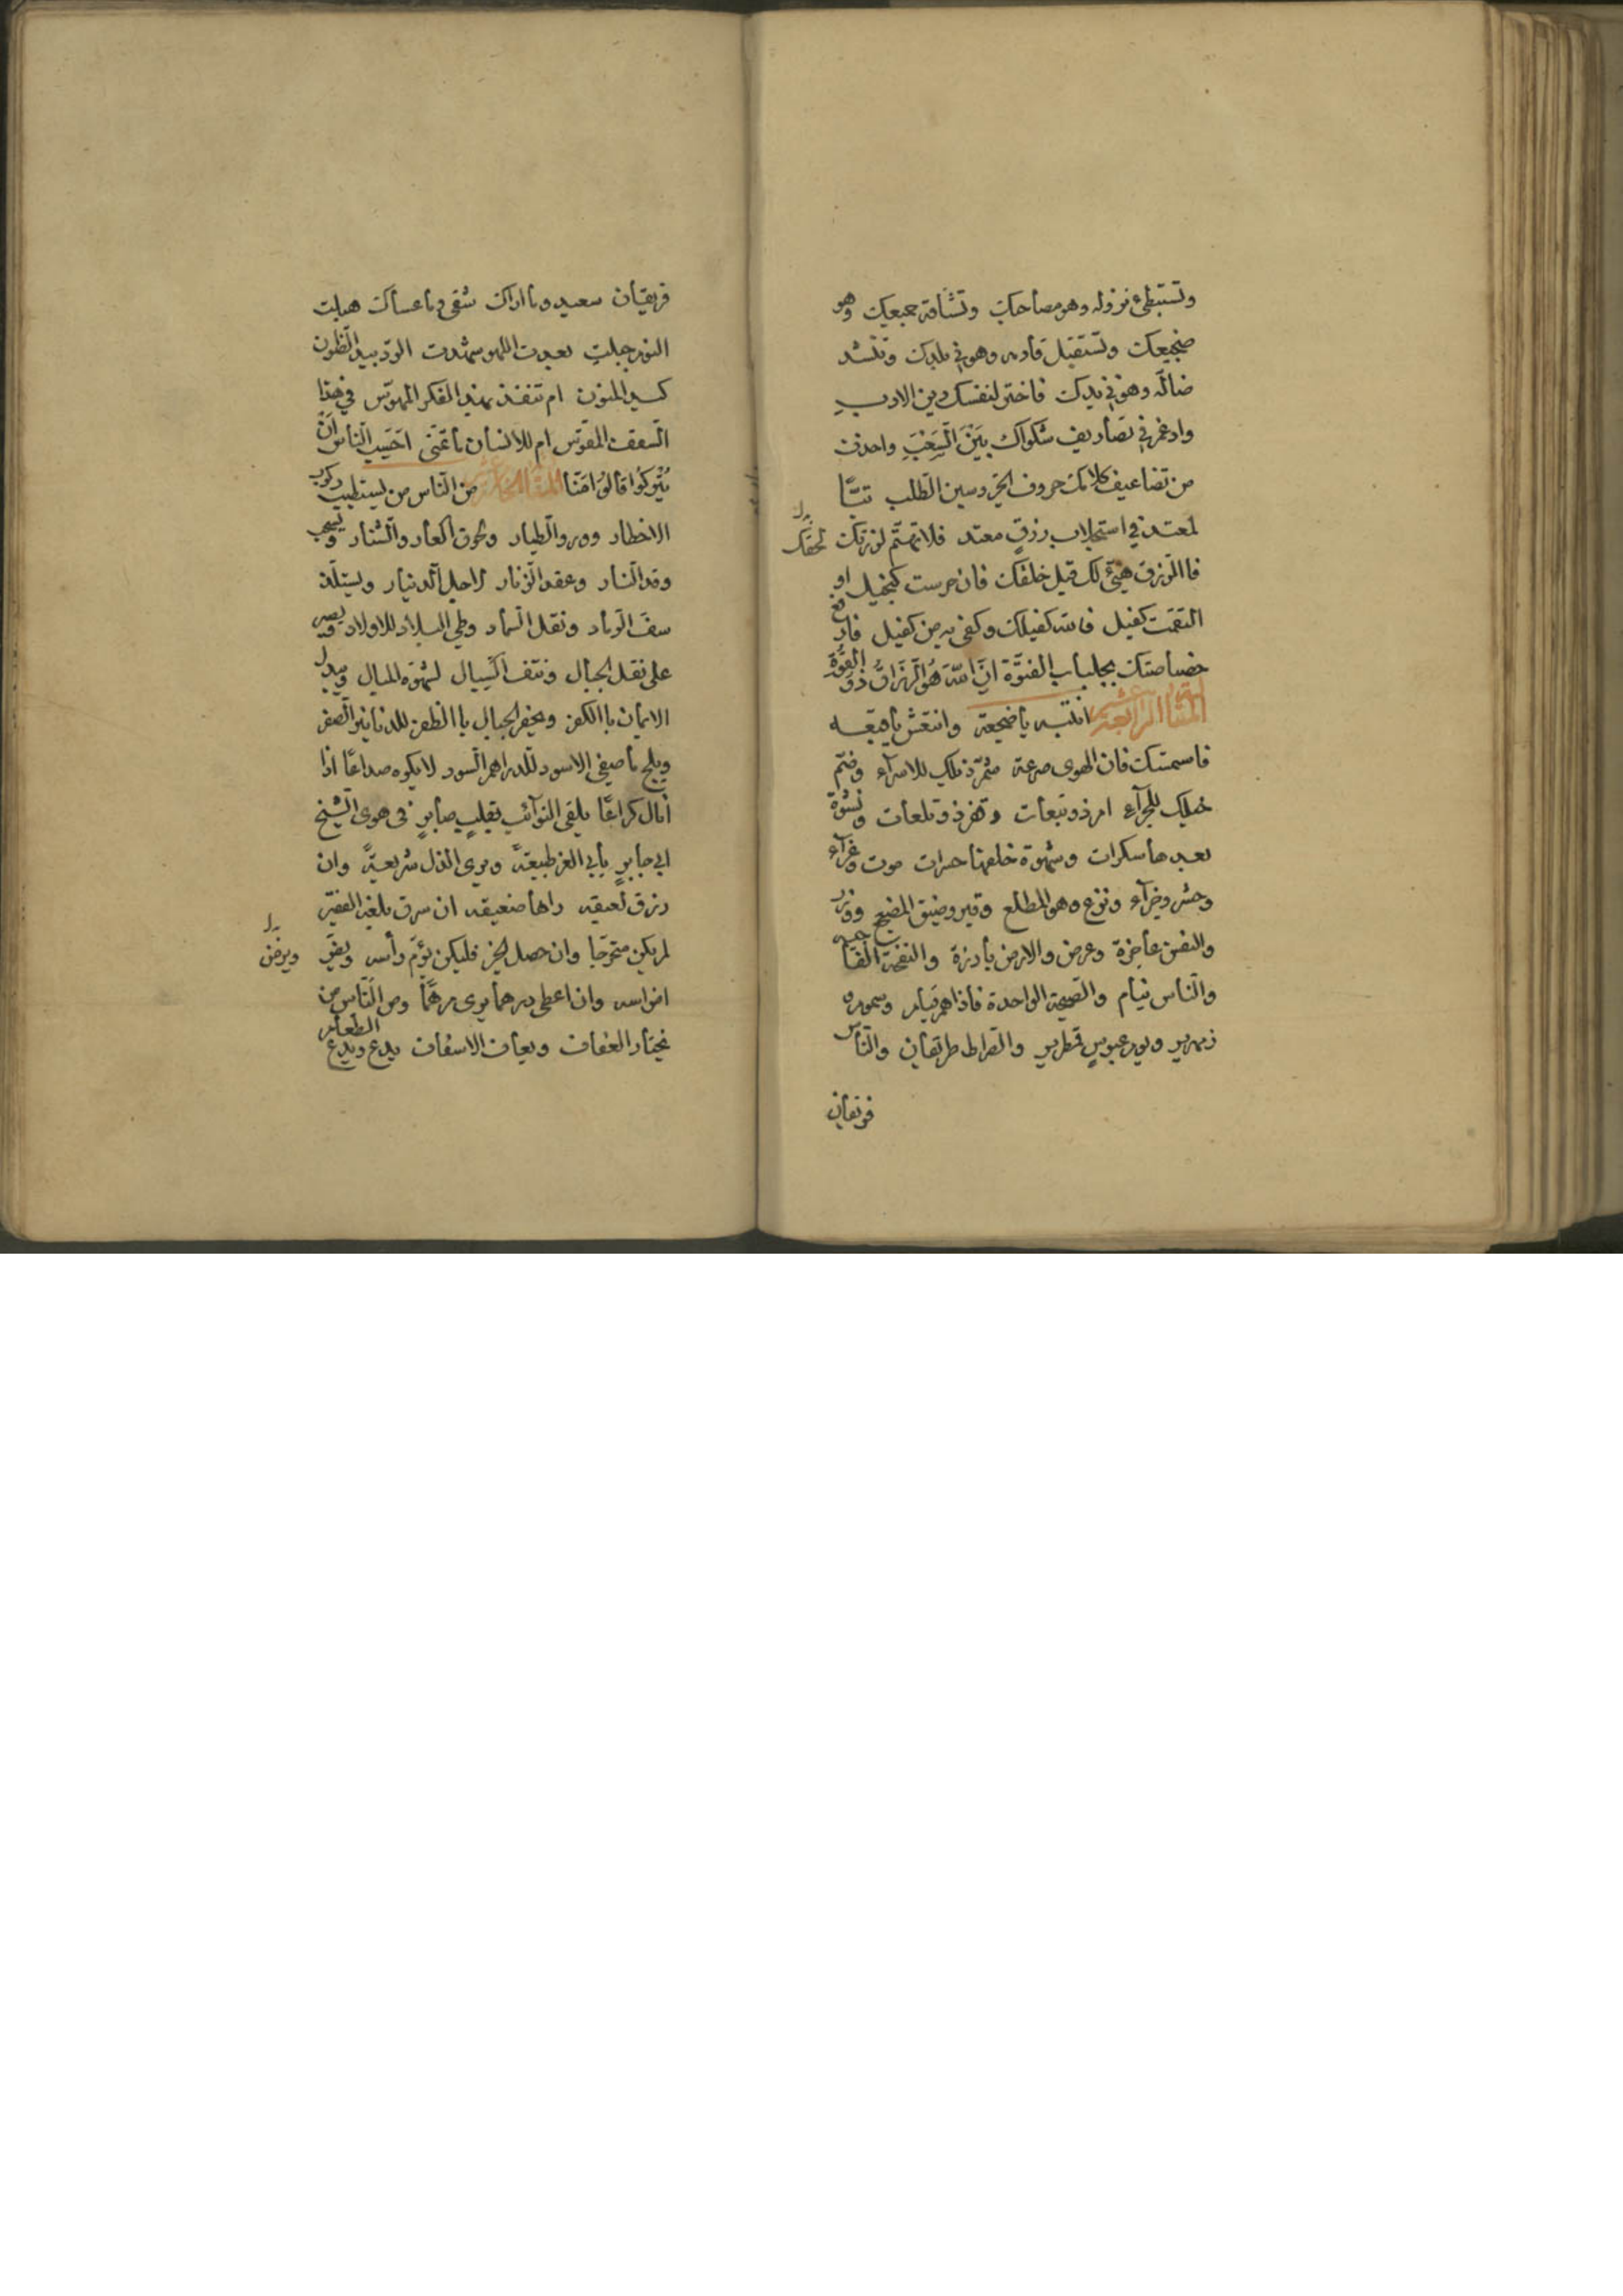 وتستبطئ نزوله وهو مصاحبك وتشتاقه جميعك وهو
ضجيعك وتستقبل قادمه وهو في بلدك وتنشد
ضالّه وهو في يدك فاختر لنفسك دين الادب
وادغم في تصاريف شكواك بَيْنَ السَّغَبِ واحذف
من تضاعيف كلامك حروف الحر وسين الطلب تبًّا
لمعتد في استجلاب رزقٍ معتد فلا تهتم لرزقك
فاالرزق هيئ لك قبل خلقك فان حرست كنخيل او
التقمت كفيل فالله كفيلك وكفى به من كفيل فارقع
خصاصتك بجلباب الفتوّة انّ الله هو الرزاق ذو القوّة
المقالة الرابعة عشر انتبه ياضجعة وانتعش ياهقعه
فاسمتك فان الهوى صرعة شمّر ذيلك للاسراء وضمّ
خيلك للجراء امر ذو تبعات وقفر ذو تلعات ونشوة
بعدها سكرات وشهوة خلفها حسرات موت وغرآء
وحشر وجزآء وفزع وهو المطلع وقبر وضيق المضجع ووزر
والنفس عاجزة وعرض والارض بارزة والنفخة
والناس نيام والصيحة الواحدة فاذا هم قيام وسموم و
زمهرير ويوم عبوس قمطرير والصراط طريقان والناس
فريقان
فريقان سعيد وماادراك شقي وماعساك هبلت
النوم جبلت بعدت اللهو شهدت الودّ بيد الظنون
كسير المنون ام تنفذ بهذه الفكر المهوّس في هذا
السقف المقوّس ام للانسان ماتمنّى احسب الناس ان
يُتركوا قالوا امنّا المقالة الخامسة عشر من الناس من يستطيب ركوب
الاخطار وورود الطيار ولحوق العار والشنار ويستحب
وقد النار وعقد الزنار لاجل الدينار ويستلذ
سفّ الرماد ونقل السماد وطي البلاد للاولاد ويصبر
على نقل الجبال ونتف السبال لشهوة المبال ويبدل
الايمان باالكفر ويحفر الجبال باالظفر للدنانير الصفر
ويلج ماضغي الاسود للدراهم السود لايكره صداعًا اذا
نال كراعًا يلقى النوآئب بقلب صابر في هوى الشيخ
ابي جابر يأبى العز طبيعةً ويرى الذل شريعةً وان
رزق لعيقه راها صنعيقه ان سرق بلغة الفقير
لم يكن متحرجًا وان حصل الخبز فليكن يؤمّ رأسه ويفق ويرضّ
اضراسه وان اعطى درهما يرى مرهمًا ومن الناس من
يختار العفاف ويعاف الاسفاف يدع الطعام ويدع